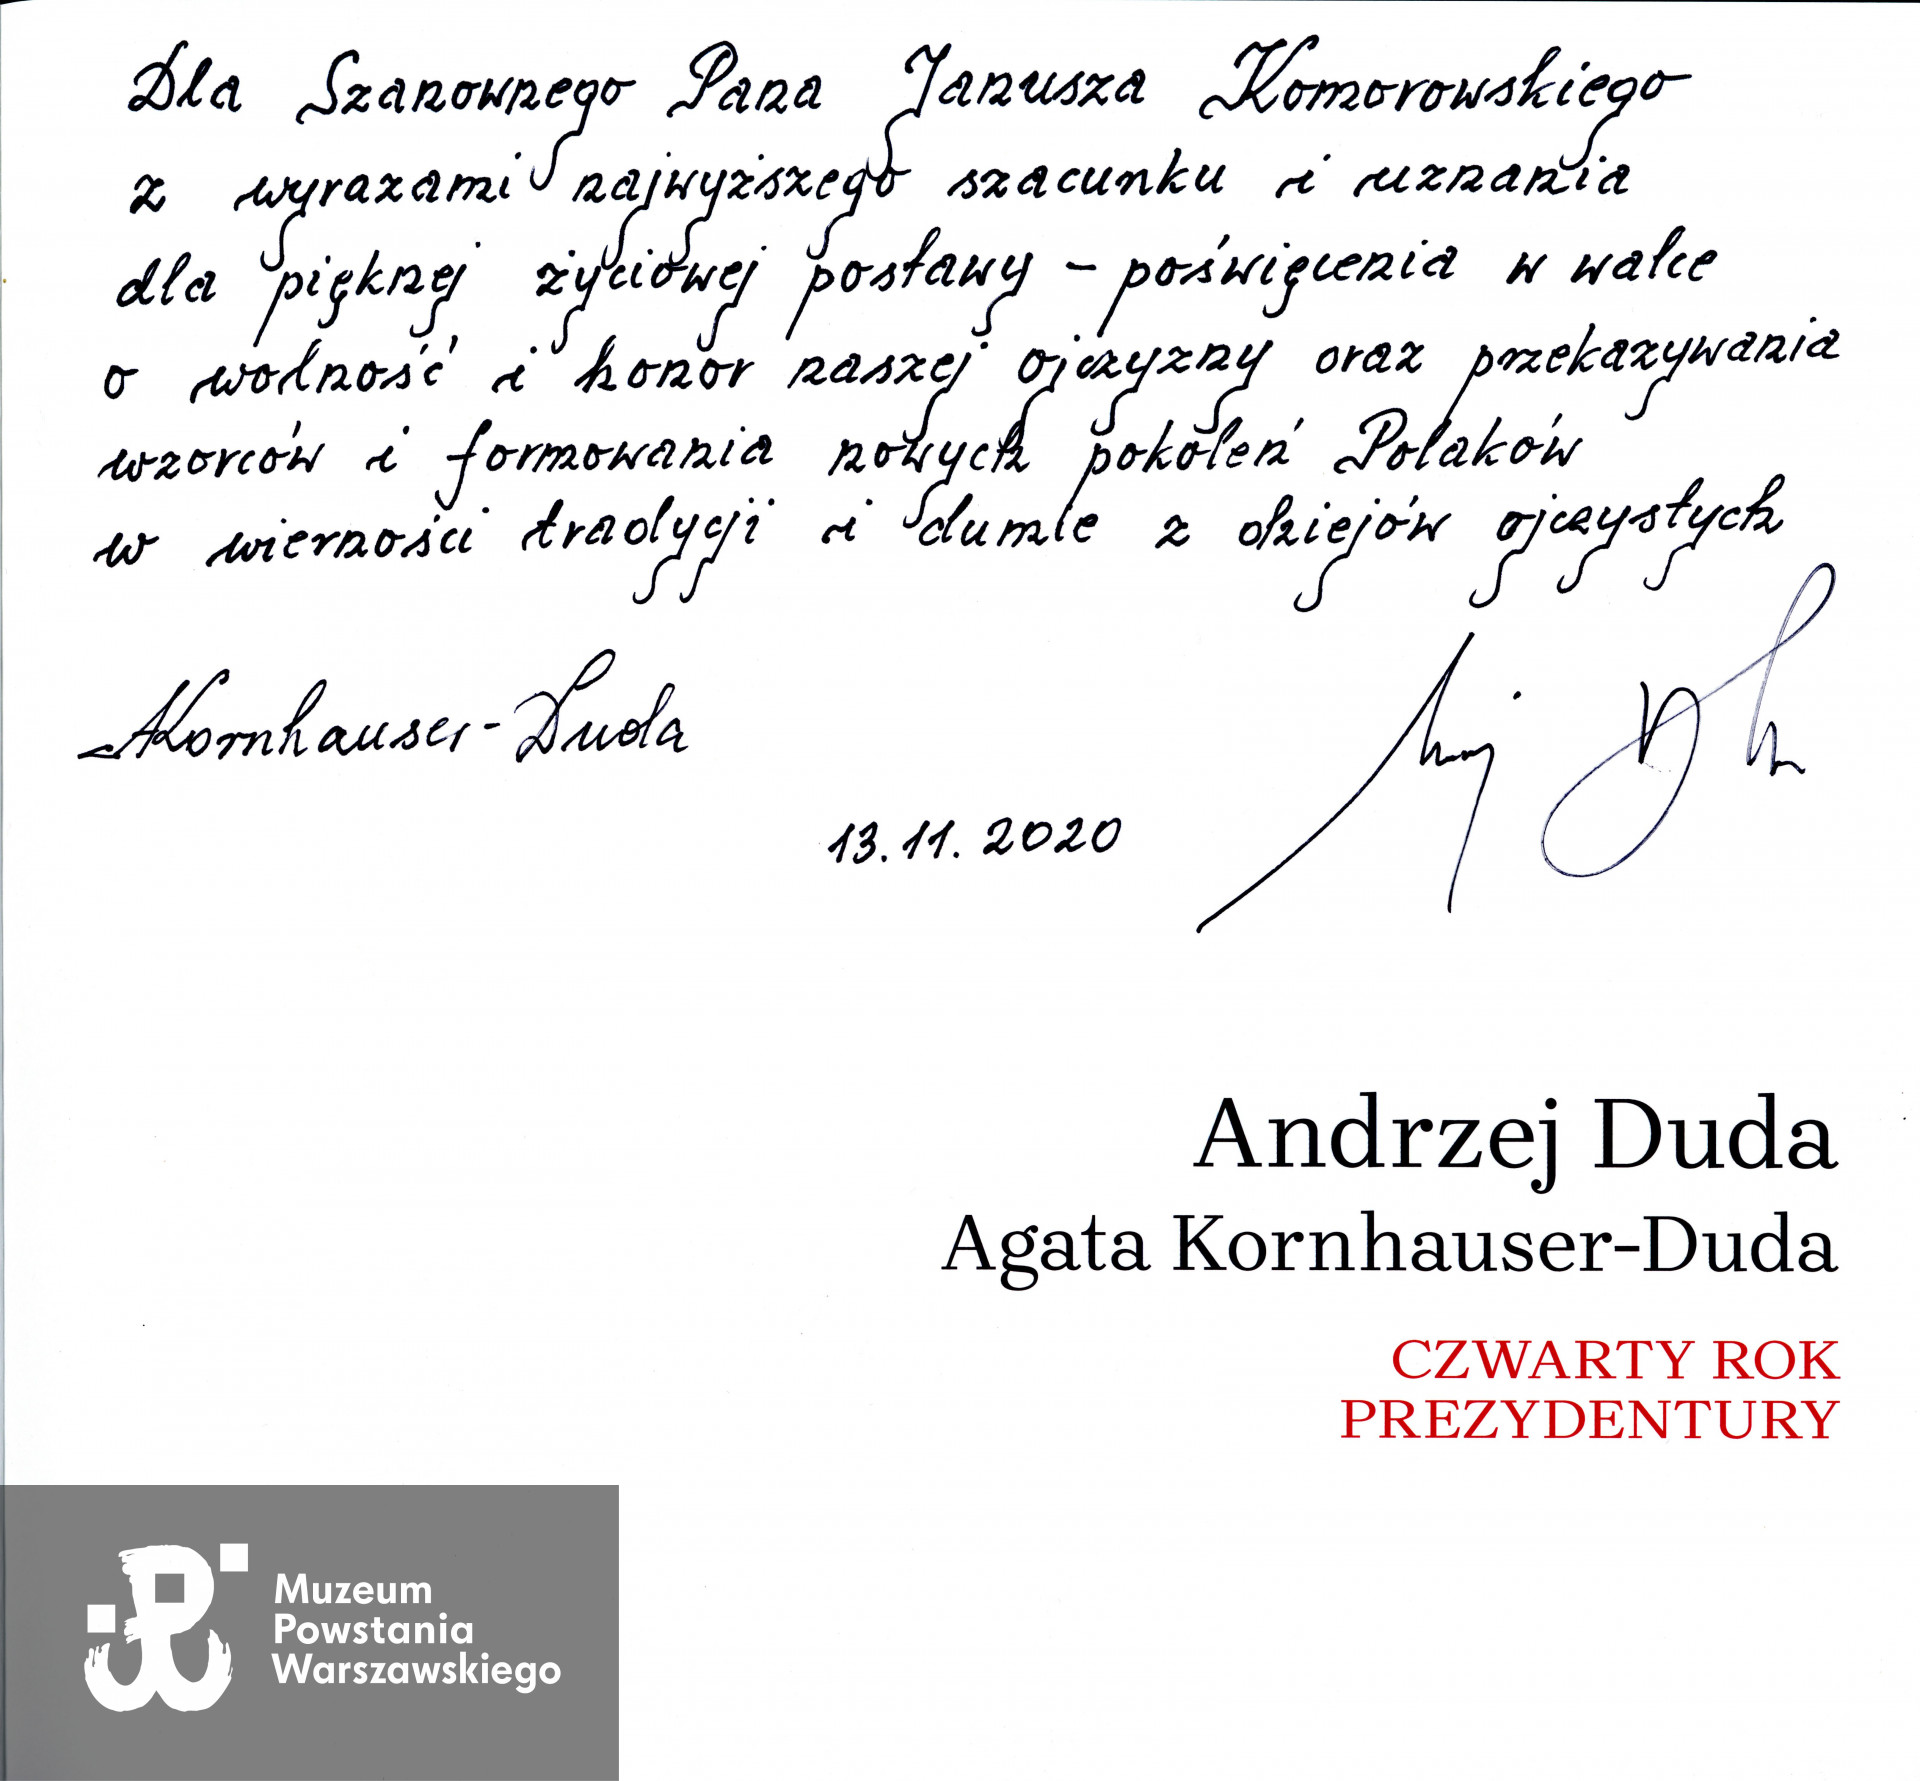 Dla Szanownego Pana Janusza Komorowskiego
z wyrazami najwyższego szacunku i uznania
dla pięknej życiowej postawy – poświęcenia w walce
o wolność i honor naszej ojczyzny oraz przekazywania
wzorców i formowania nowych pokoleń Polaków
w wierności tradycji i dumie z dziejów ojczystych
AKornhauser-Duda
13.11.2020
Andrzej Duda
Agata Kornhauser-Duda
CZWARTY ROK
PREZYDENTURY
Muzeum
Powstania
Warszawskiego